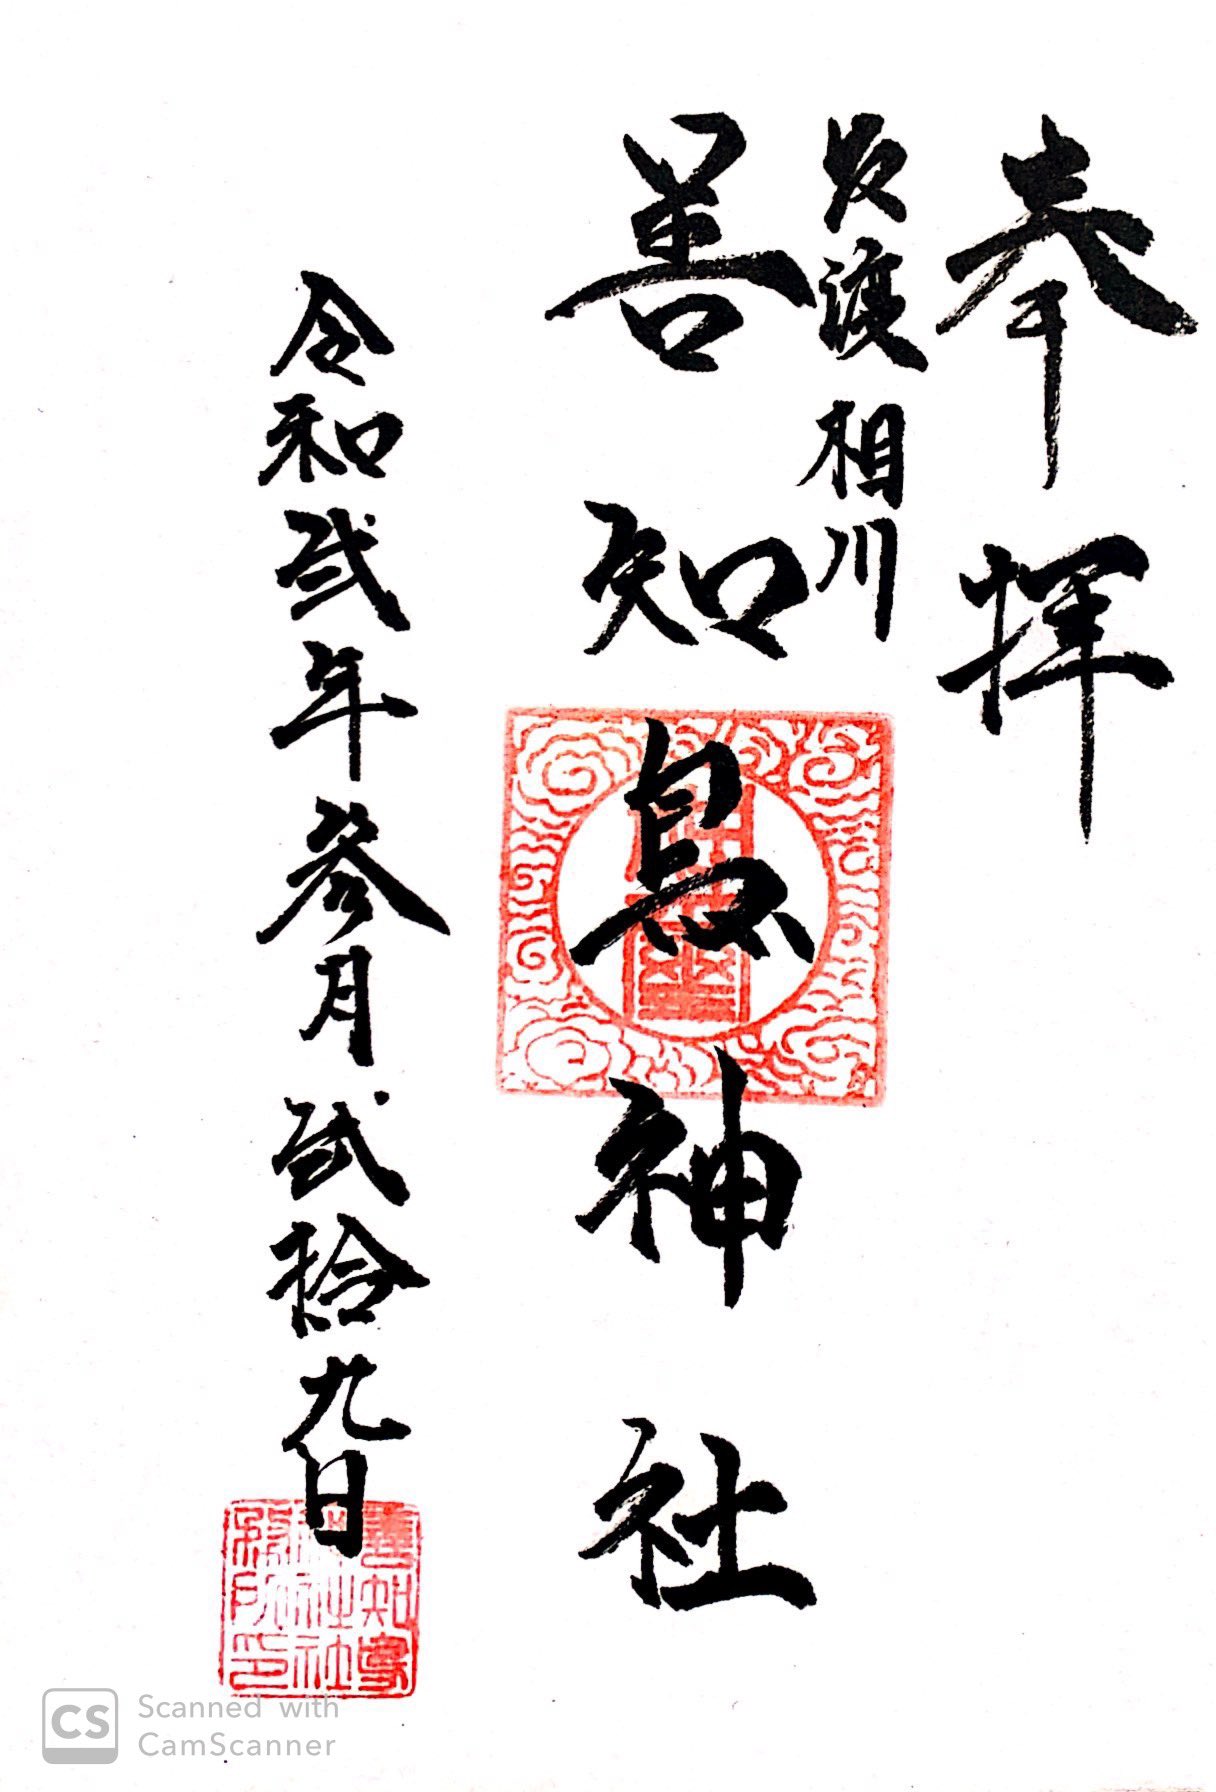 奉拝
佐渡相川
善知鳥神社
令和弐年参月弐拾九日
善知鳥
神社社
務所印
Scanned with
CamScanner
CS